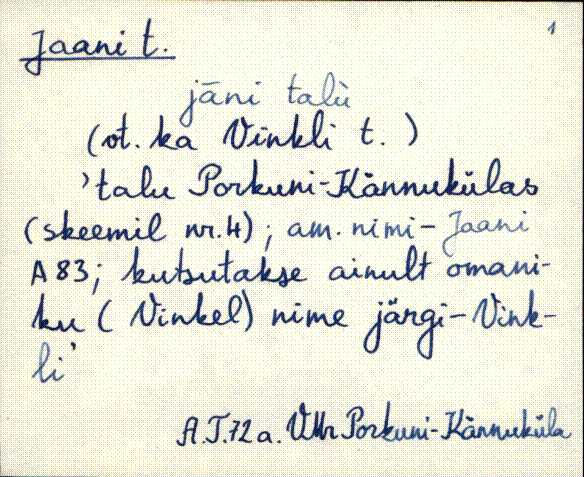 1
Jaani t.
jāni talù
(ot. ka Vinkli t.)
'talu Porkuni-Kännukülas
(skeemil nr.4); am. nimi - Jaani
A 83; kutsutakse ainult omani-
ku (Vinkel) nime järgi - Vink-
li'
A.T.72 a. VMr Porkuni-Kännuküla